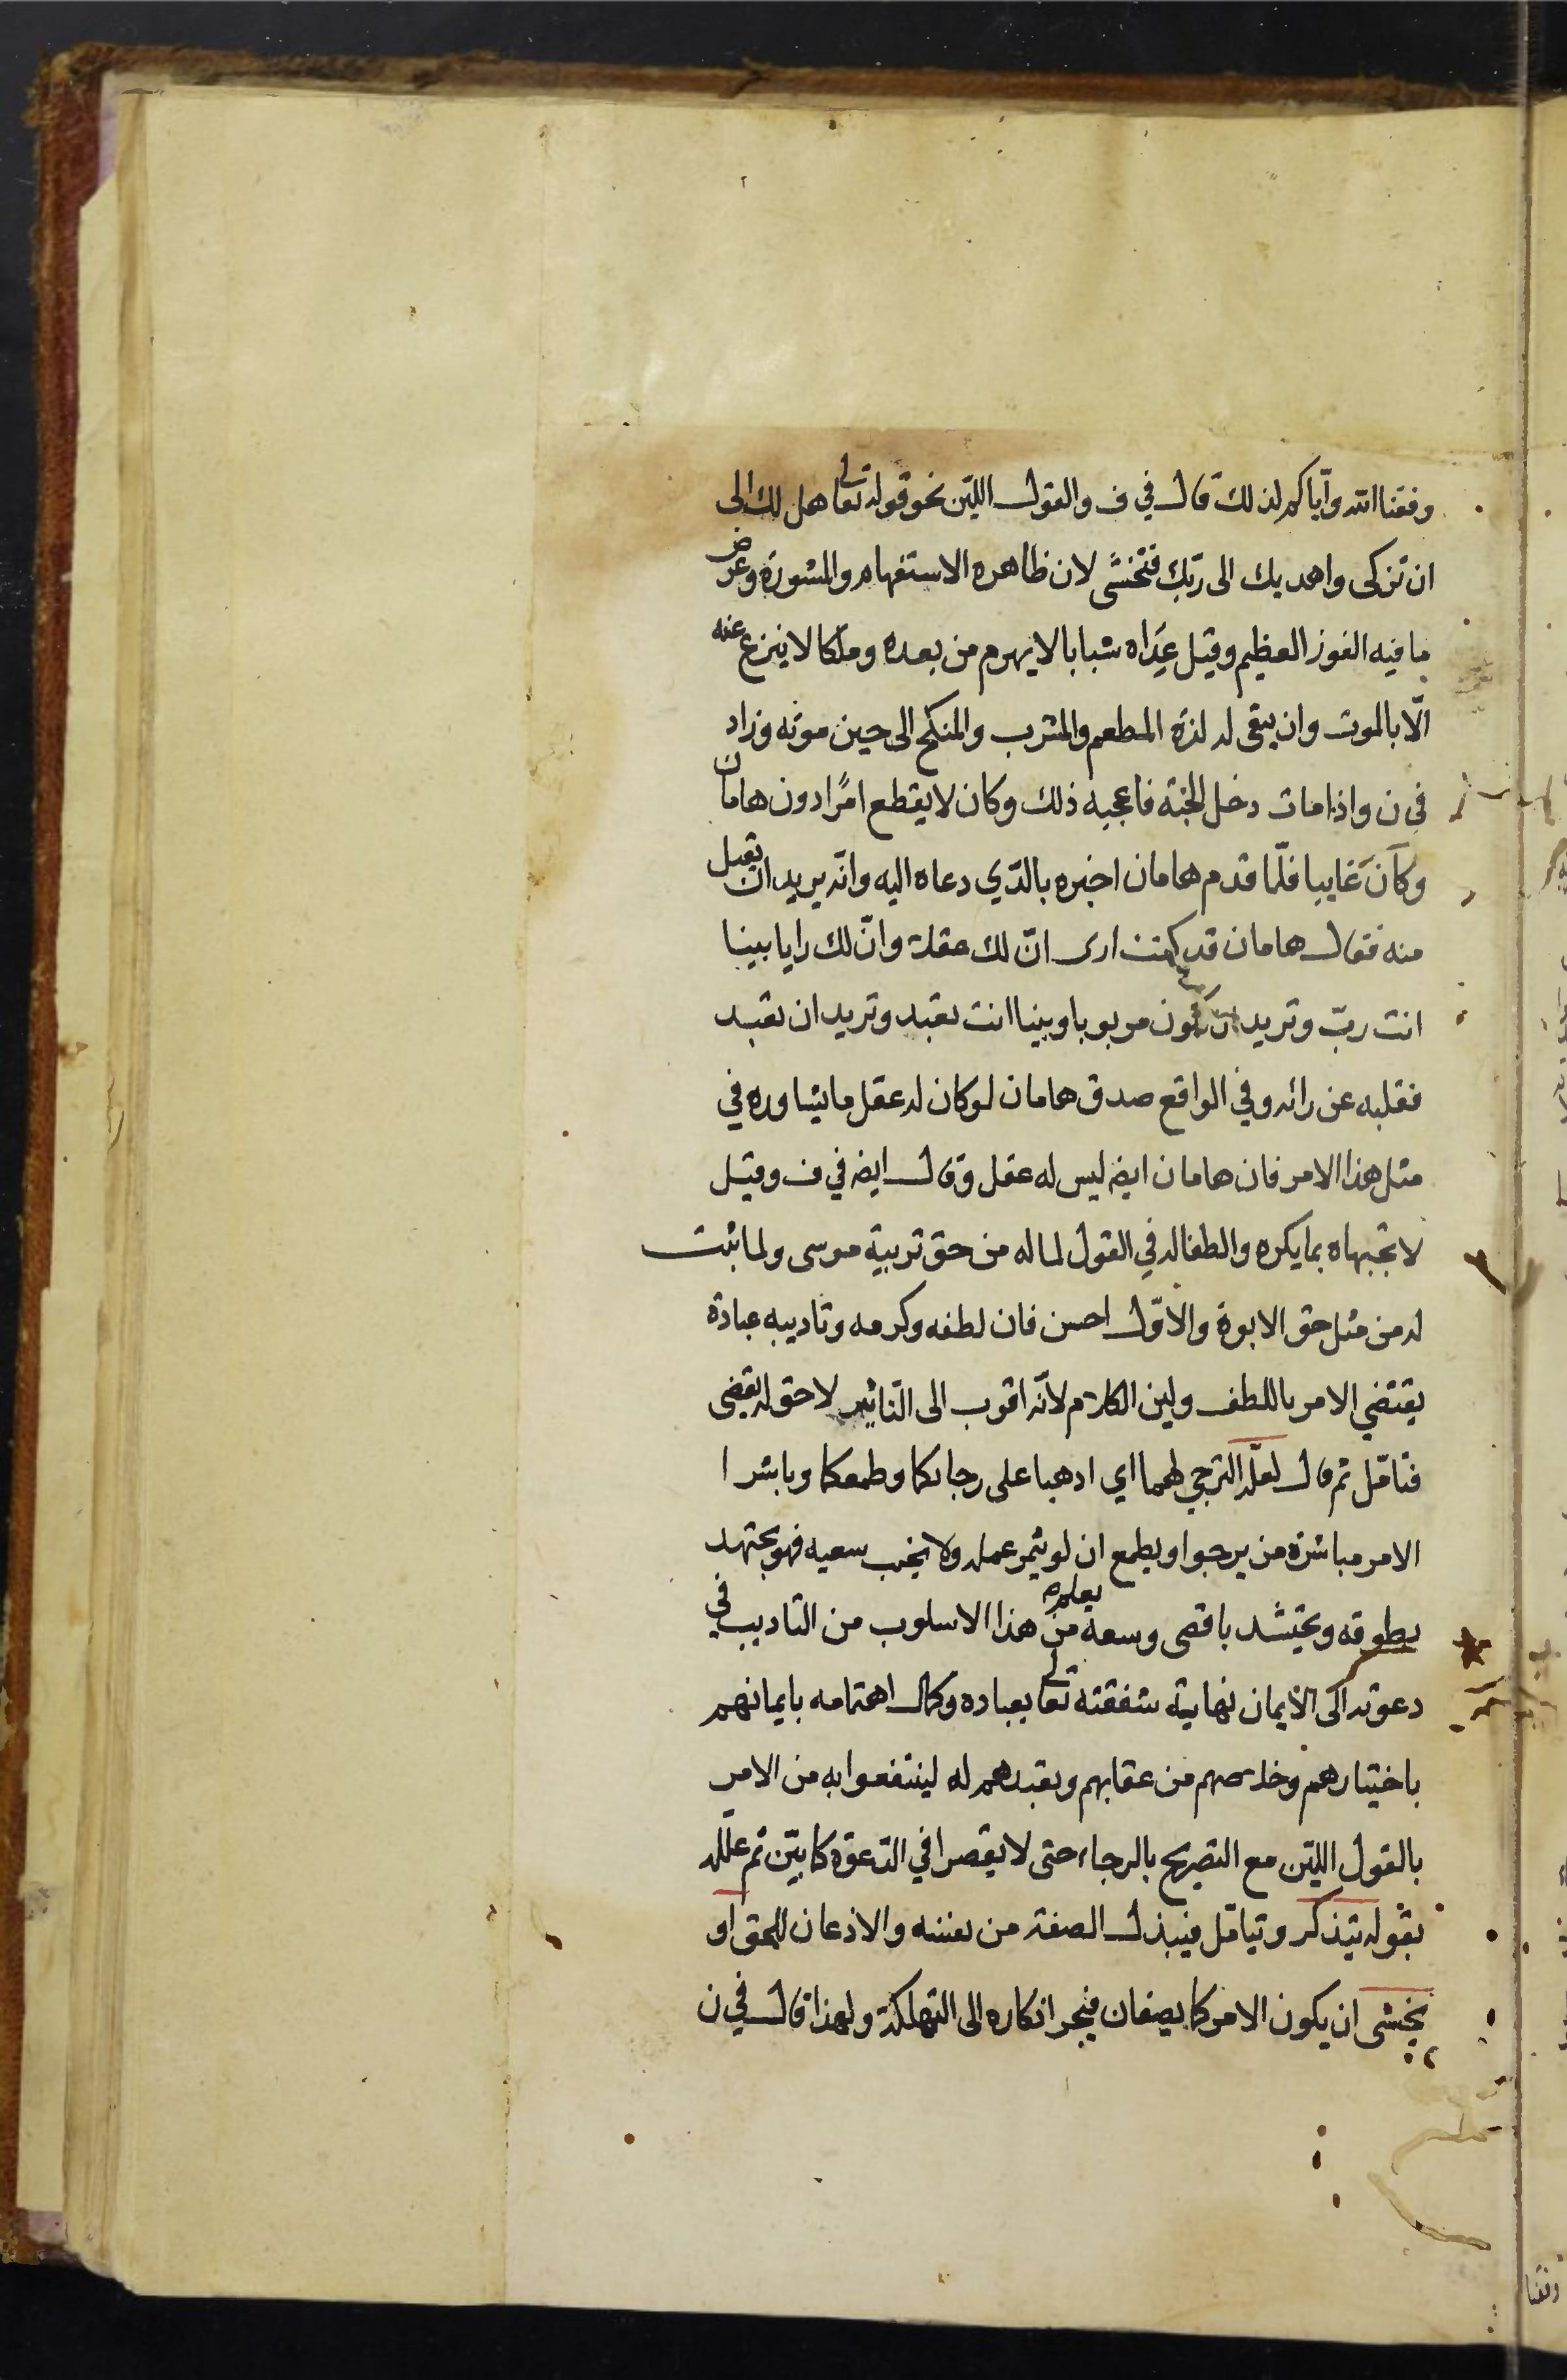 وفقنا الله وآياكم لذلك قال في ف والقول اللين نحو قوله تعالى هل لك الى
ان تزكى واهديك الى ربك فتخشى لان ظاهره الاستفهام والمشورة وعرض
ما فيه الفوز العظيم وقيل عِدَاه شبابا لا يهرم من بعده وملكا لا ينزع عنه
الّا بالموت وان يبقى له لذة المطعم والمشرب والمنكح الى حين موته وزاد
في ن واذا مات دخل الجنة فاعجبه ذلك وكان لا يقطع امرًا دون هامان
وكان غايبا فلّما قدم هامان اخبره بالذي دعاه اليه وانه يريد ان يقبل
منه فقال هامان قد كنت ارى انّ لك عقلا وانّ لك رايا بينا
انت ربّ وتريد ان تكون مربوبا وبينا انت تعبد وتريد ان تعبد
فقلبه عن رائه وفي الواقع صدق هامان لو كان له عقل ما يشاوره في
مثل هذا الامر فان هامان ايضه ليس له عقل وقال ايضه في ف وقيل
لا تجبهاه بما يكره والطفا له في القول لما له من حق تربية موسى ولما ثبت
له من مثل حق الابوة والاوّل احسن فان لطفه وكرمه وتاديبه عباده
يقتضي الامر باللطف ولين الكلام لانّه اقرب الى التاثير لا حق له يقضى
فتامّل ثم قال لعلّه الترجي لهما اي اذهبا على رجائكما وطمعكما وباشرا
الامر مباشرة من يرجوا ويطمع ان لو يثمر عمله ولا يخيب سعيه فهو يجتهد
بطوقه ويحتشد باقصى وسعه يعلم من هذا الاسلوب من التاديب في
دعوته الى الايمان نهاية شفقته تعالى بعباده وكمال اهتمامه بايمانهم
باختيارهم وخلاصهم من عقابهم وتعبدهم له لينتفعوا به من الامر
بالقول اللين مع التصريح بالرجاء حتى لا يقصرا في الدعوة كما بيّن ثم علله
بقوله يتذكر ويتامّل فيبذل الصفة من نفسه والاذعان للحق او
يخشى ان يكون الامر كما يصفان فيجر انكاره الى التهلكة ولهذا قال في ن